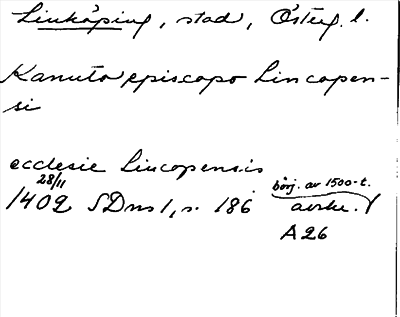 Linköping, stad, Österg. l.
Kanuto episcopo Lincopen-
si
ecclesie Lincopensis
28/11 börj. av 1500-t.
1402 SDns 1, s. 186 avskr.
A 26